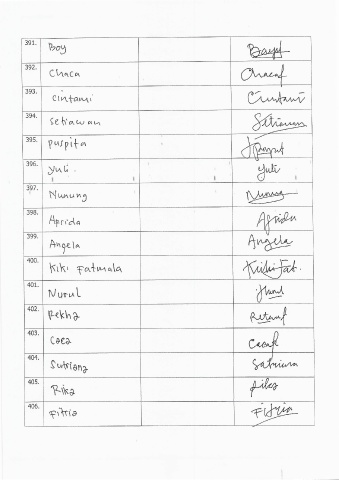 391. Boy
392. Chaca Chacaf
393. Cintami Cintami
394. Setiawan Setiawan
395. Puspita
396. Yuli Yuli
397. Nunung Nunung
398. Aprida Aprida
399. Angela Angela
400. Kiki Fatmala KikiFat.
401. Nurul
402. Rekha
403. Caca Cacaf
404. Sutriana Satriana
405. Rika Rika
406. Fitria Fitria